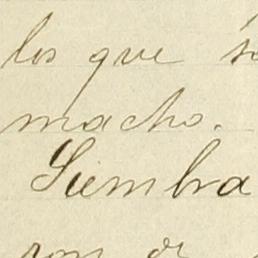 los que
macho.
Siembra